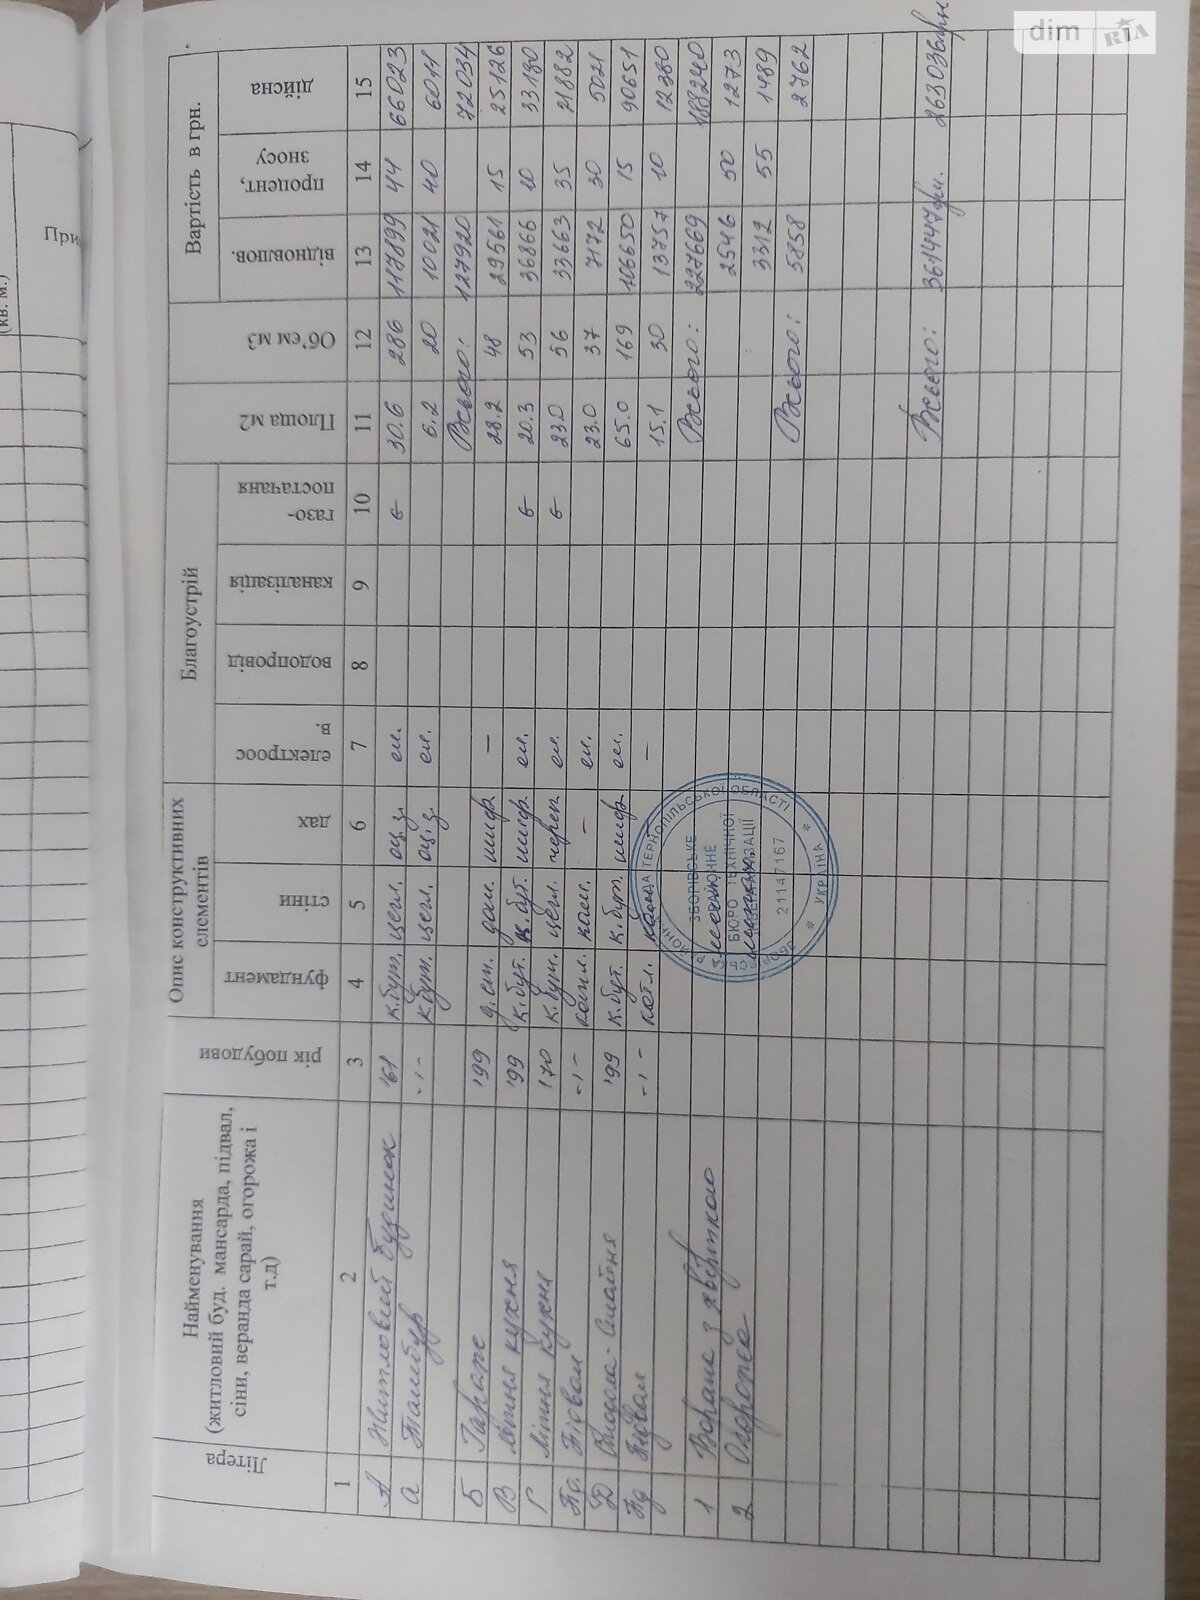 dim RIA
(кв. м.)
При
Літера
Найменування
(житловий буд. мансарда, підвал,
сіни, веранда сарай, огорожа і
т.д)
рік побудови
Опис конструктивних
елементів
фундамент
стіни
дах
Благоустрій
електроос
в.
водопровід
каналізація
газо-
постачаня
Площа м2
Об'єм м3
Вартість в грн.
відновлюв.
процент,
зносу
дійсна
1 2 3 4 5 6 7 8 9 10 11 12 13 14 15
А Житловий будинок '61 к.бут. цегл. оц.з. ел. г 30.6 286 117899 44 66023
а Тамбур -ı- к.бут. цегл. оц.з. ел. 6.2 20 10021 40 6011
Всього: 127920 72034
Б Гараж '99 шиф. - 28.2 48 29561 15 25126
В Літня кухня '99 к.бут. к.бут. шиф. ел. г 20.3 53 36866 10 33180
Г Літня кухня '70 к.бут. цегл. череп. ел. г 23.0 56 33663 35 21882
Пд. Підвал -ı- кам. - ел. 23.0 37 7172 30 5021
Д Стодола-Стайня '99 к.бут. к.бут. шиф. ел. 65.0 169 106650 15 90651
Пд Підвал -ı- котл. - 15.1 30 13757 10 12380
Всього: 227669 188240
1 Ворота з хвірткою 2546 50 1273
2 Огорожа 3312 55 1489
Всього: 5858 2762
Всього: 361447грн. 263036грн
ТЕРНОПІЛЬСЬКОЇ ОБЛАСТІ
ЗБОРІВСЬКЕ
РАЙОННЕ
БЮРО ТЕХНІЧНОЇ
ІНВЕНТАРИЗАЦІЇ
21147167
* УКРАЇНА *